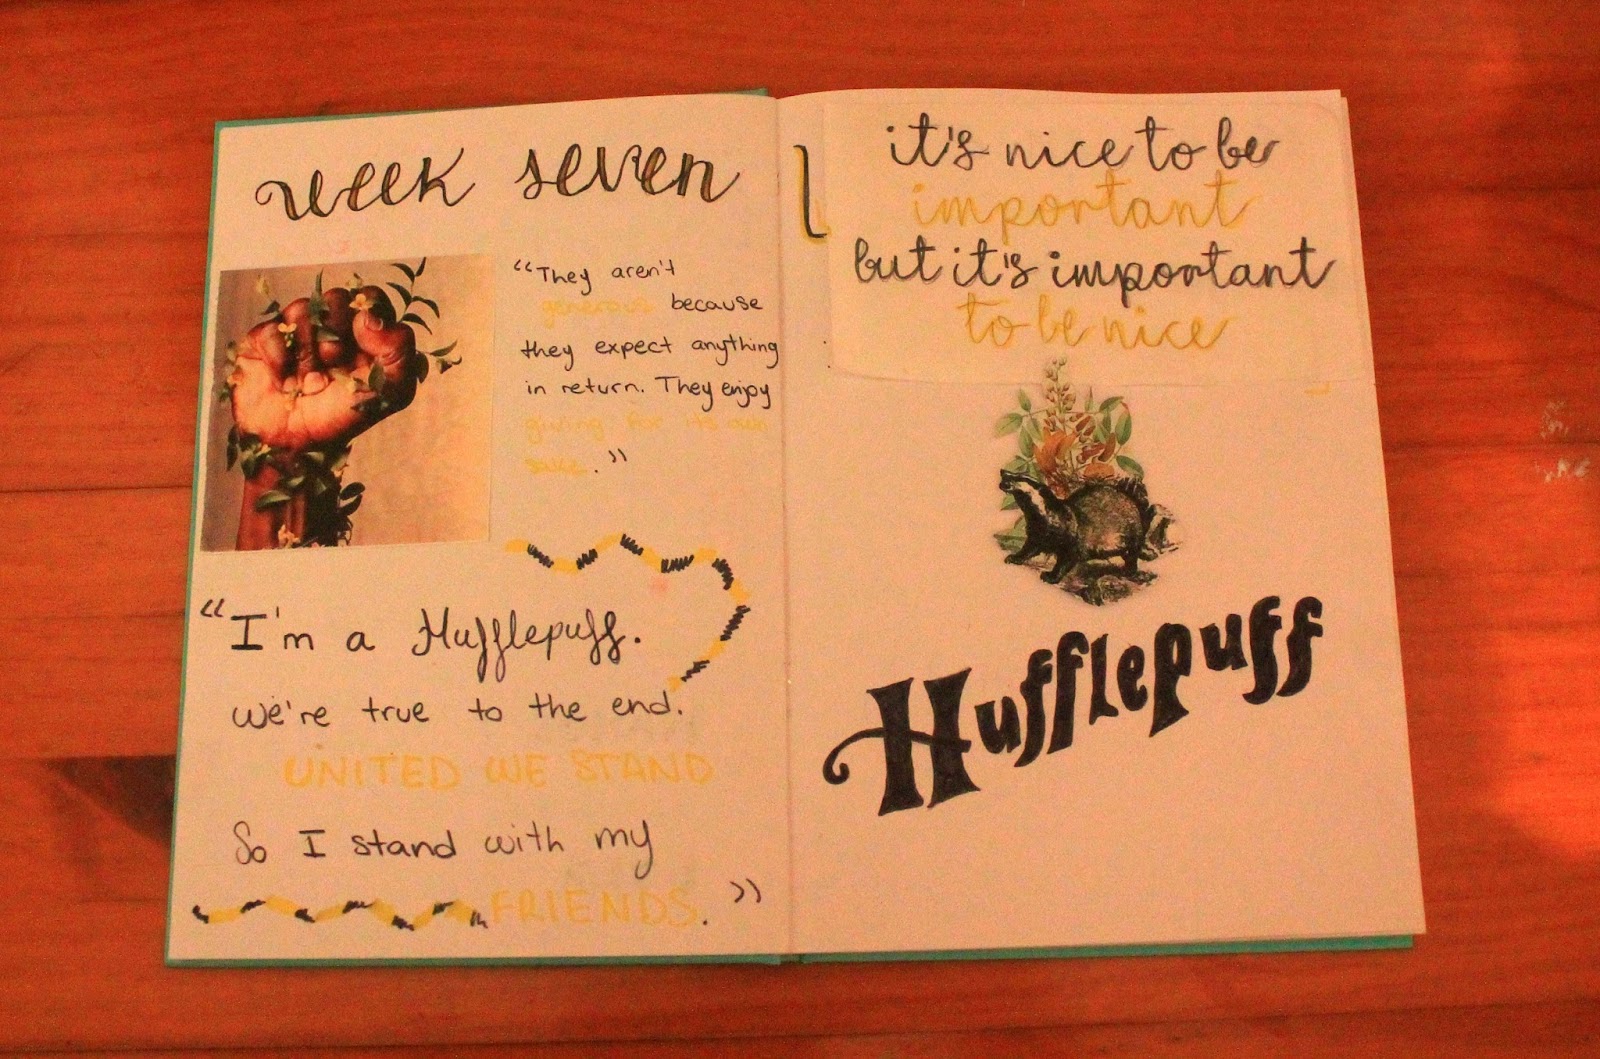 week seven
“They aren't
generous because
they expect anything
in return. They enjoy
giving for its own
sake.”
“I'm a Hufflepuff.
We're true to the end.
UNITED WE STAND
So I stand with my
FRIENDS.”
it's nice to be
important
but it's important
to be nice
Hufflepuff